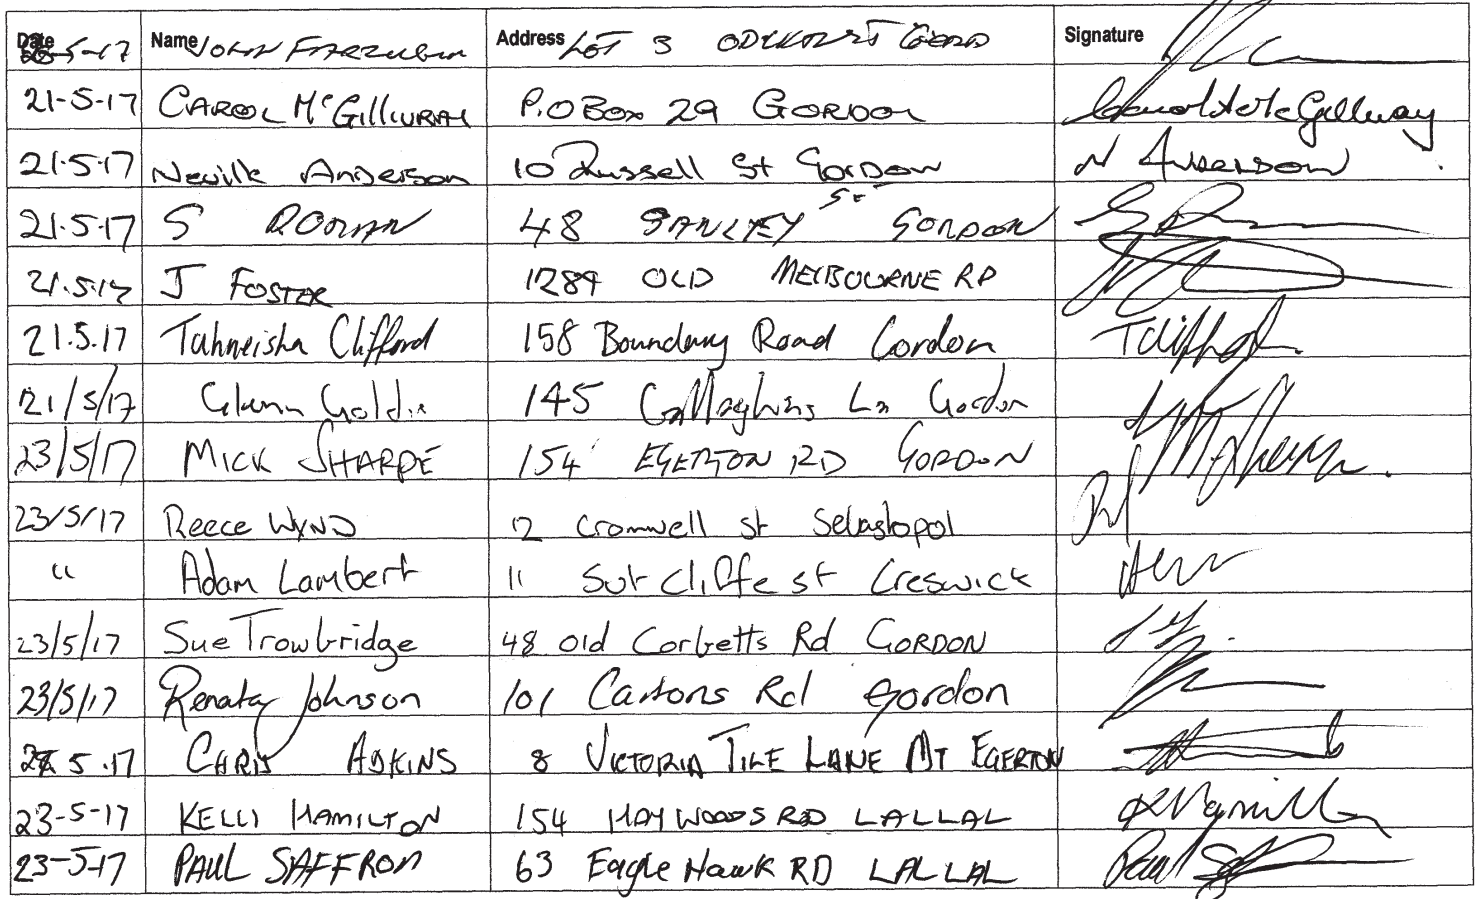 Date Name Address Signature
-5-17 JOHN LOT 3
21-5-17 CAROL McGILLIVRAY P.O Box 29 GORDON
21.5.17 Neville Anderson 10 Russell St Gordon N ANDERSON
21.5.17 S 48 STANLEY ST GORDON
21.5.17 J FOSTER 1289 OLD MELBOURNE RD
21.5.17 Tahneisha Clifford 158 Boundary Road Gordon TClifford
21/5/17 Glenn Goldie 145 Callaghans Ln Gordon
23/5/17 MICK SHARPE 154 EGERTON RD GORDON
23/5/17 Reece WYND 12 Cromwell st Sebastopol
" Adam Lambert 11 Sutcliffe st Creswick
23/5/17 Sue Trowbridge 48 Old Corbetts Rd GORDON
23/5/17 Renata Johnson 101 Cartons Rd Gordon
5.17 CHRIS ADKINS 8 VICTORIA TILE LANE MT EGERTON
23-5-17 KELLI HAMILTON 154 HAYWOODS RD LALLAL
23-5-17 PAUL SAFFRON 63 Eagle Hawk RD LALLAL Paul